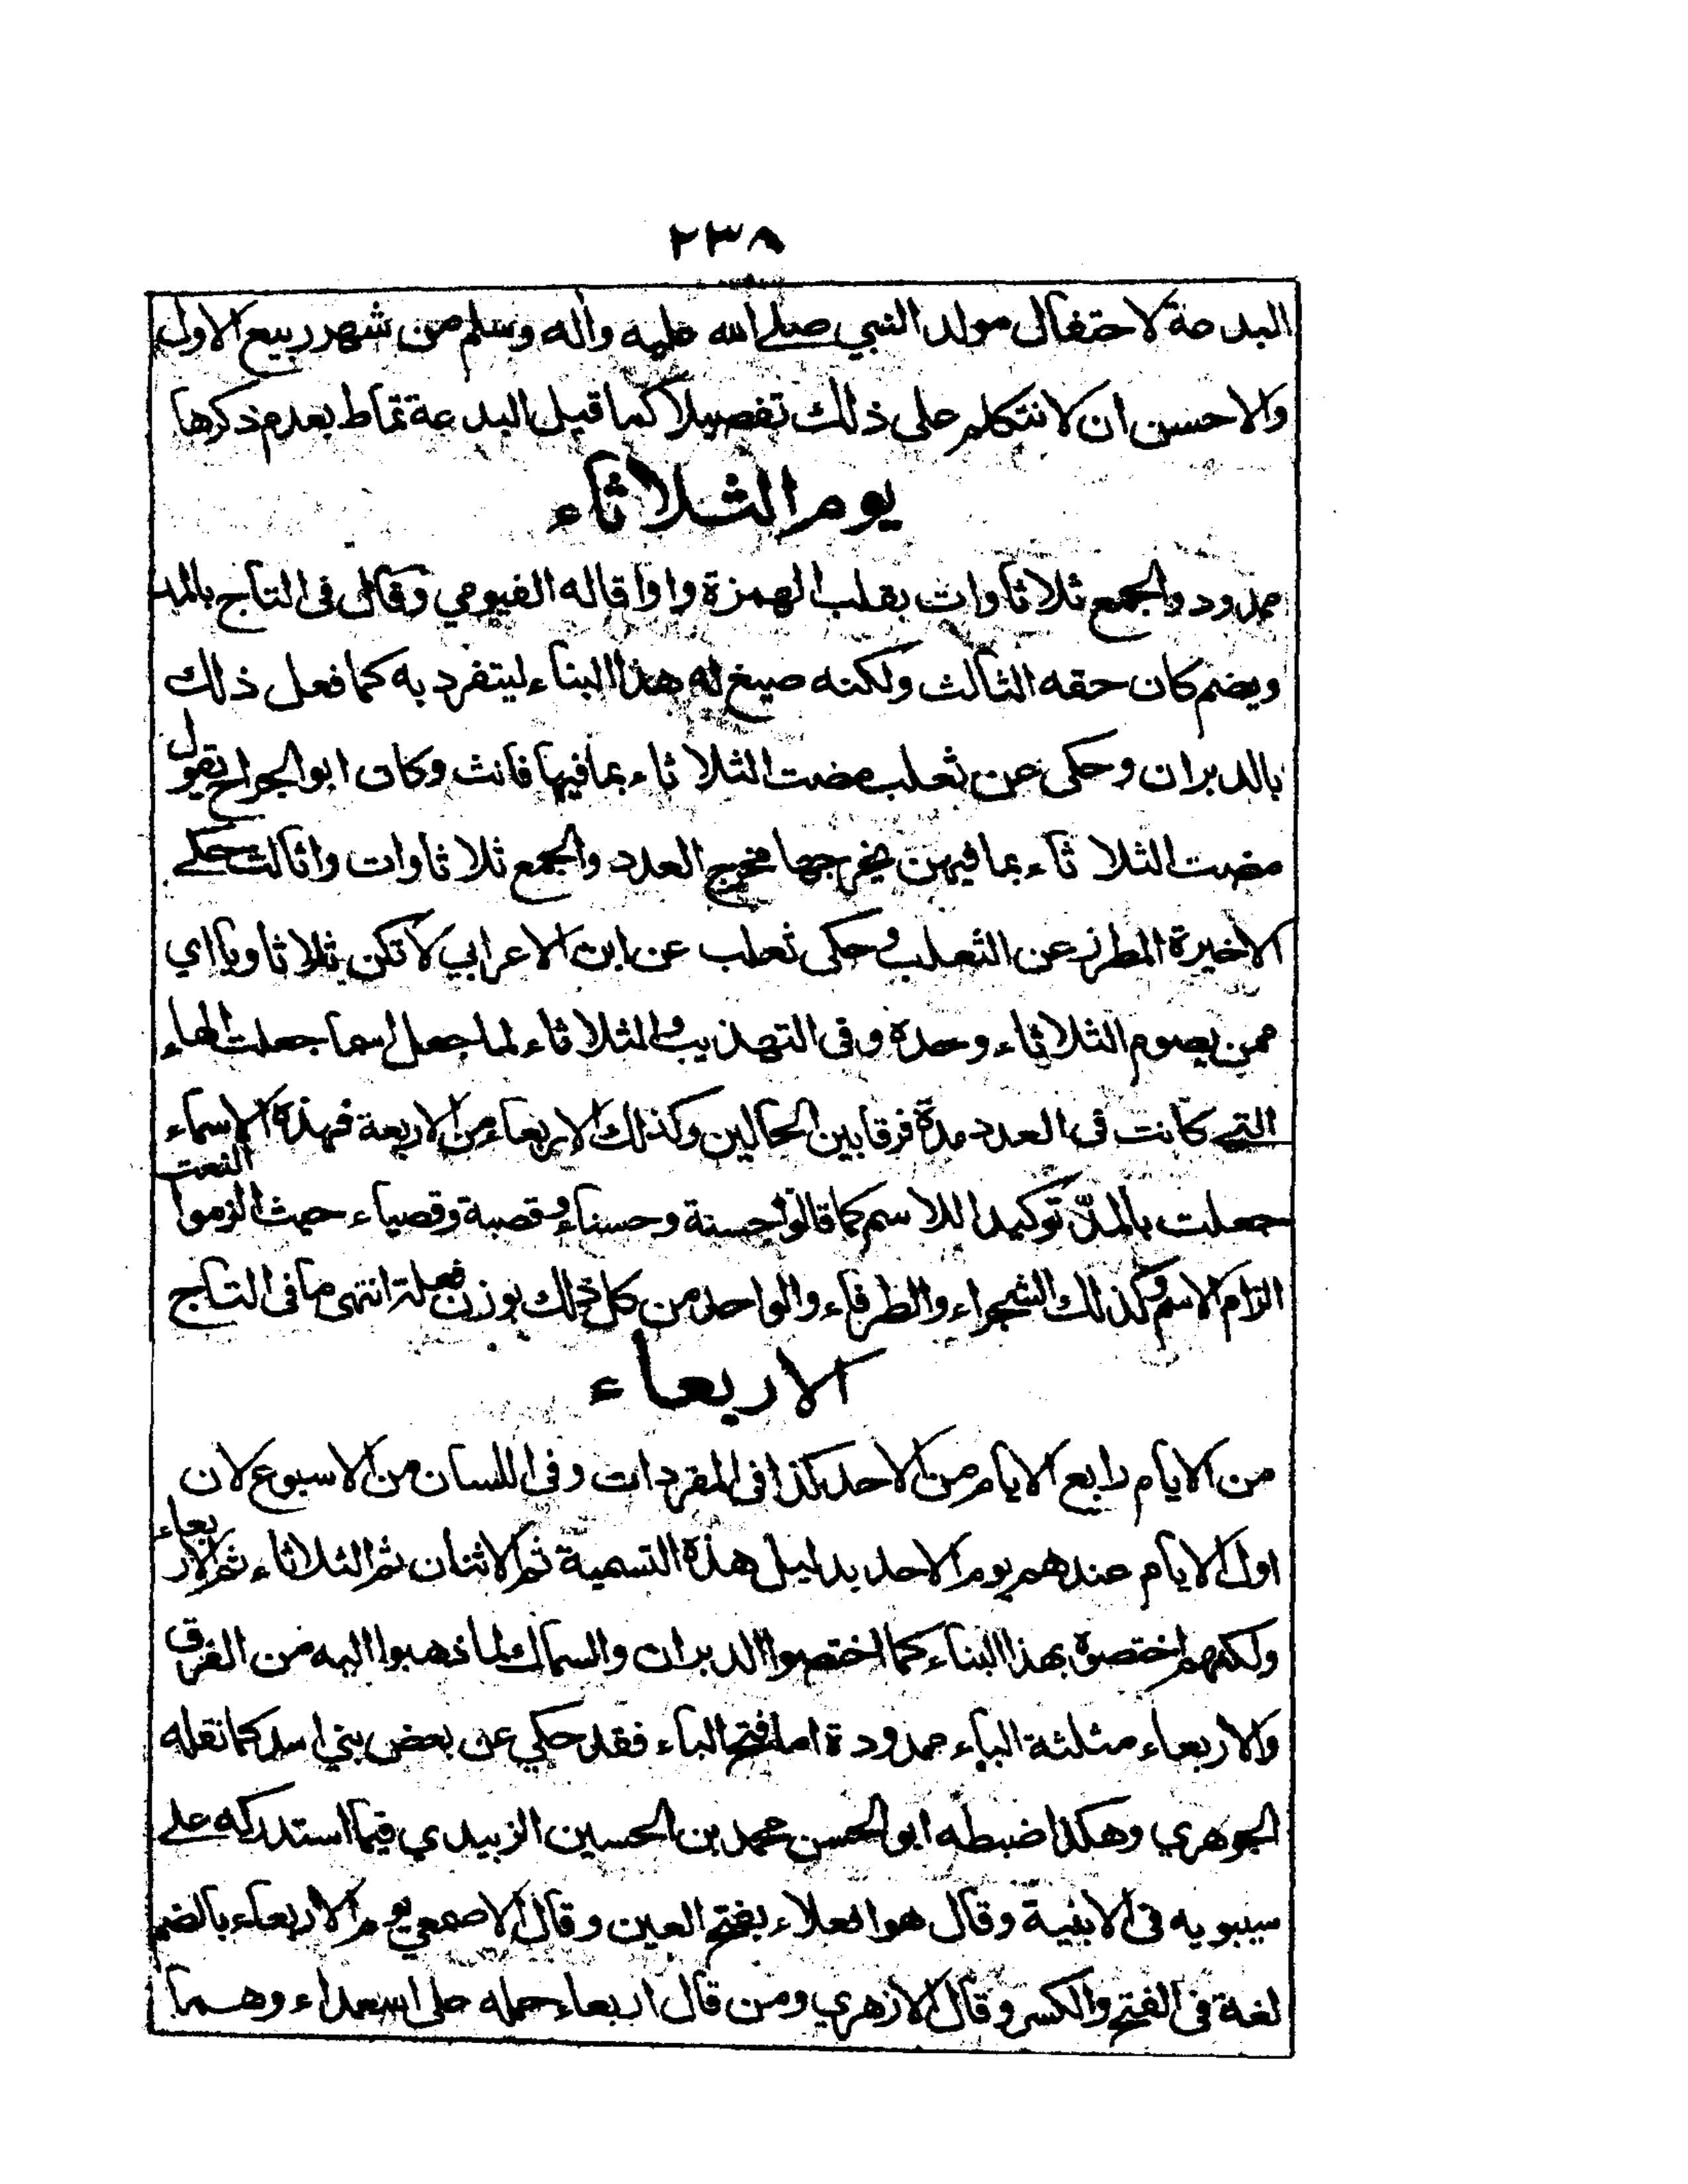 ٢٣٨
البدعة لاحتفال مولد النبي صلى الله عليه وأله وسلم من شهر ربيع الاول
والاحسن ان لا نتكلم على ذلك تفصيلا كما قيل البدعة تماط بعدم ذكرها
يوم الثلاثاء
ممدود والجمع ثلاثاوات بقلب الهمزة واوا قاله الفيومي وقال فى التاج بالمد
ويضم كان حقه الثالث ولكنه صيغ له هذا البناء ليتفرد به كما فعل ذلك
بالدبران وحكى عن ثعلب مضت الثلاثاء بما فيها فانث وكان ابو الجراح يقول
مضت الثلاثاء بما فيهن يخرجها مخرج العدد والجمع ثلاثاوات واثالث حكى
الاخيرة المطرز عن الثعلب وحكى ثعلب عن ابن الاعرابي لا تكن ثلاثاويا اي
ممن يصوم الثلاثاء وحده وفى التهذيب والثلاثاء لما جعل اسما جعلت الهاء
التي كانت فى العدد مدة فرقا بين الحالين وكذلك الاربعاء من الاربعة فهذه الاسماء
جعلت بالمدّ توكيدا للاسم كما قالوا حسنة وحسناء وقصبة وقصباء حيث الزموا النعت
الزام الاسم وكذلك الشجراء والطرفاء والواحد من كل ذلك بوزن فعلة انتهى ما فى التاج
الاربعاء
من الايام رابع الايام من الاحد كذا فى المفردات وفى اللسان من الاسبوع لان
اول الايام عندهم يوم الاحد بدليل هذه التسمية ثم الاثنان ثم الثلاثاء ثم الاربعاء
ولكنهم اختصوه بهذا البناء كما اختصوا الدبران والسماك لما ذهبوا اليه من الفرق
والاربعاء مثلثة الباء ممدودة اما فتح الباء فقد حكي عن بعض بني اسد كما نقله
الجوهري وهكذا ضبطه ابو الحسن محمد بن الحسين الزبيدي فيما استدركه على
سيبويه فى الابنية وقال هو افعلاء بفتح العين وقال الاصمعي يوم الاربعاء بالضم
لغة فى الفتح والكسر وقال الازهري ومن قال اربعاء حمله على اسعداء وهما